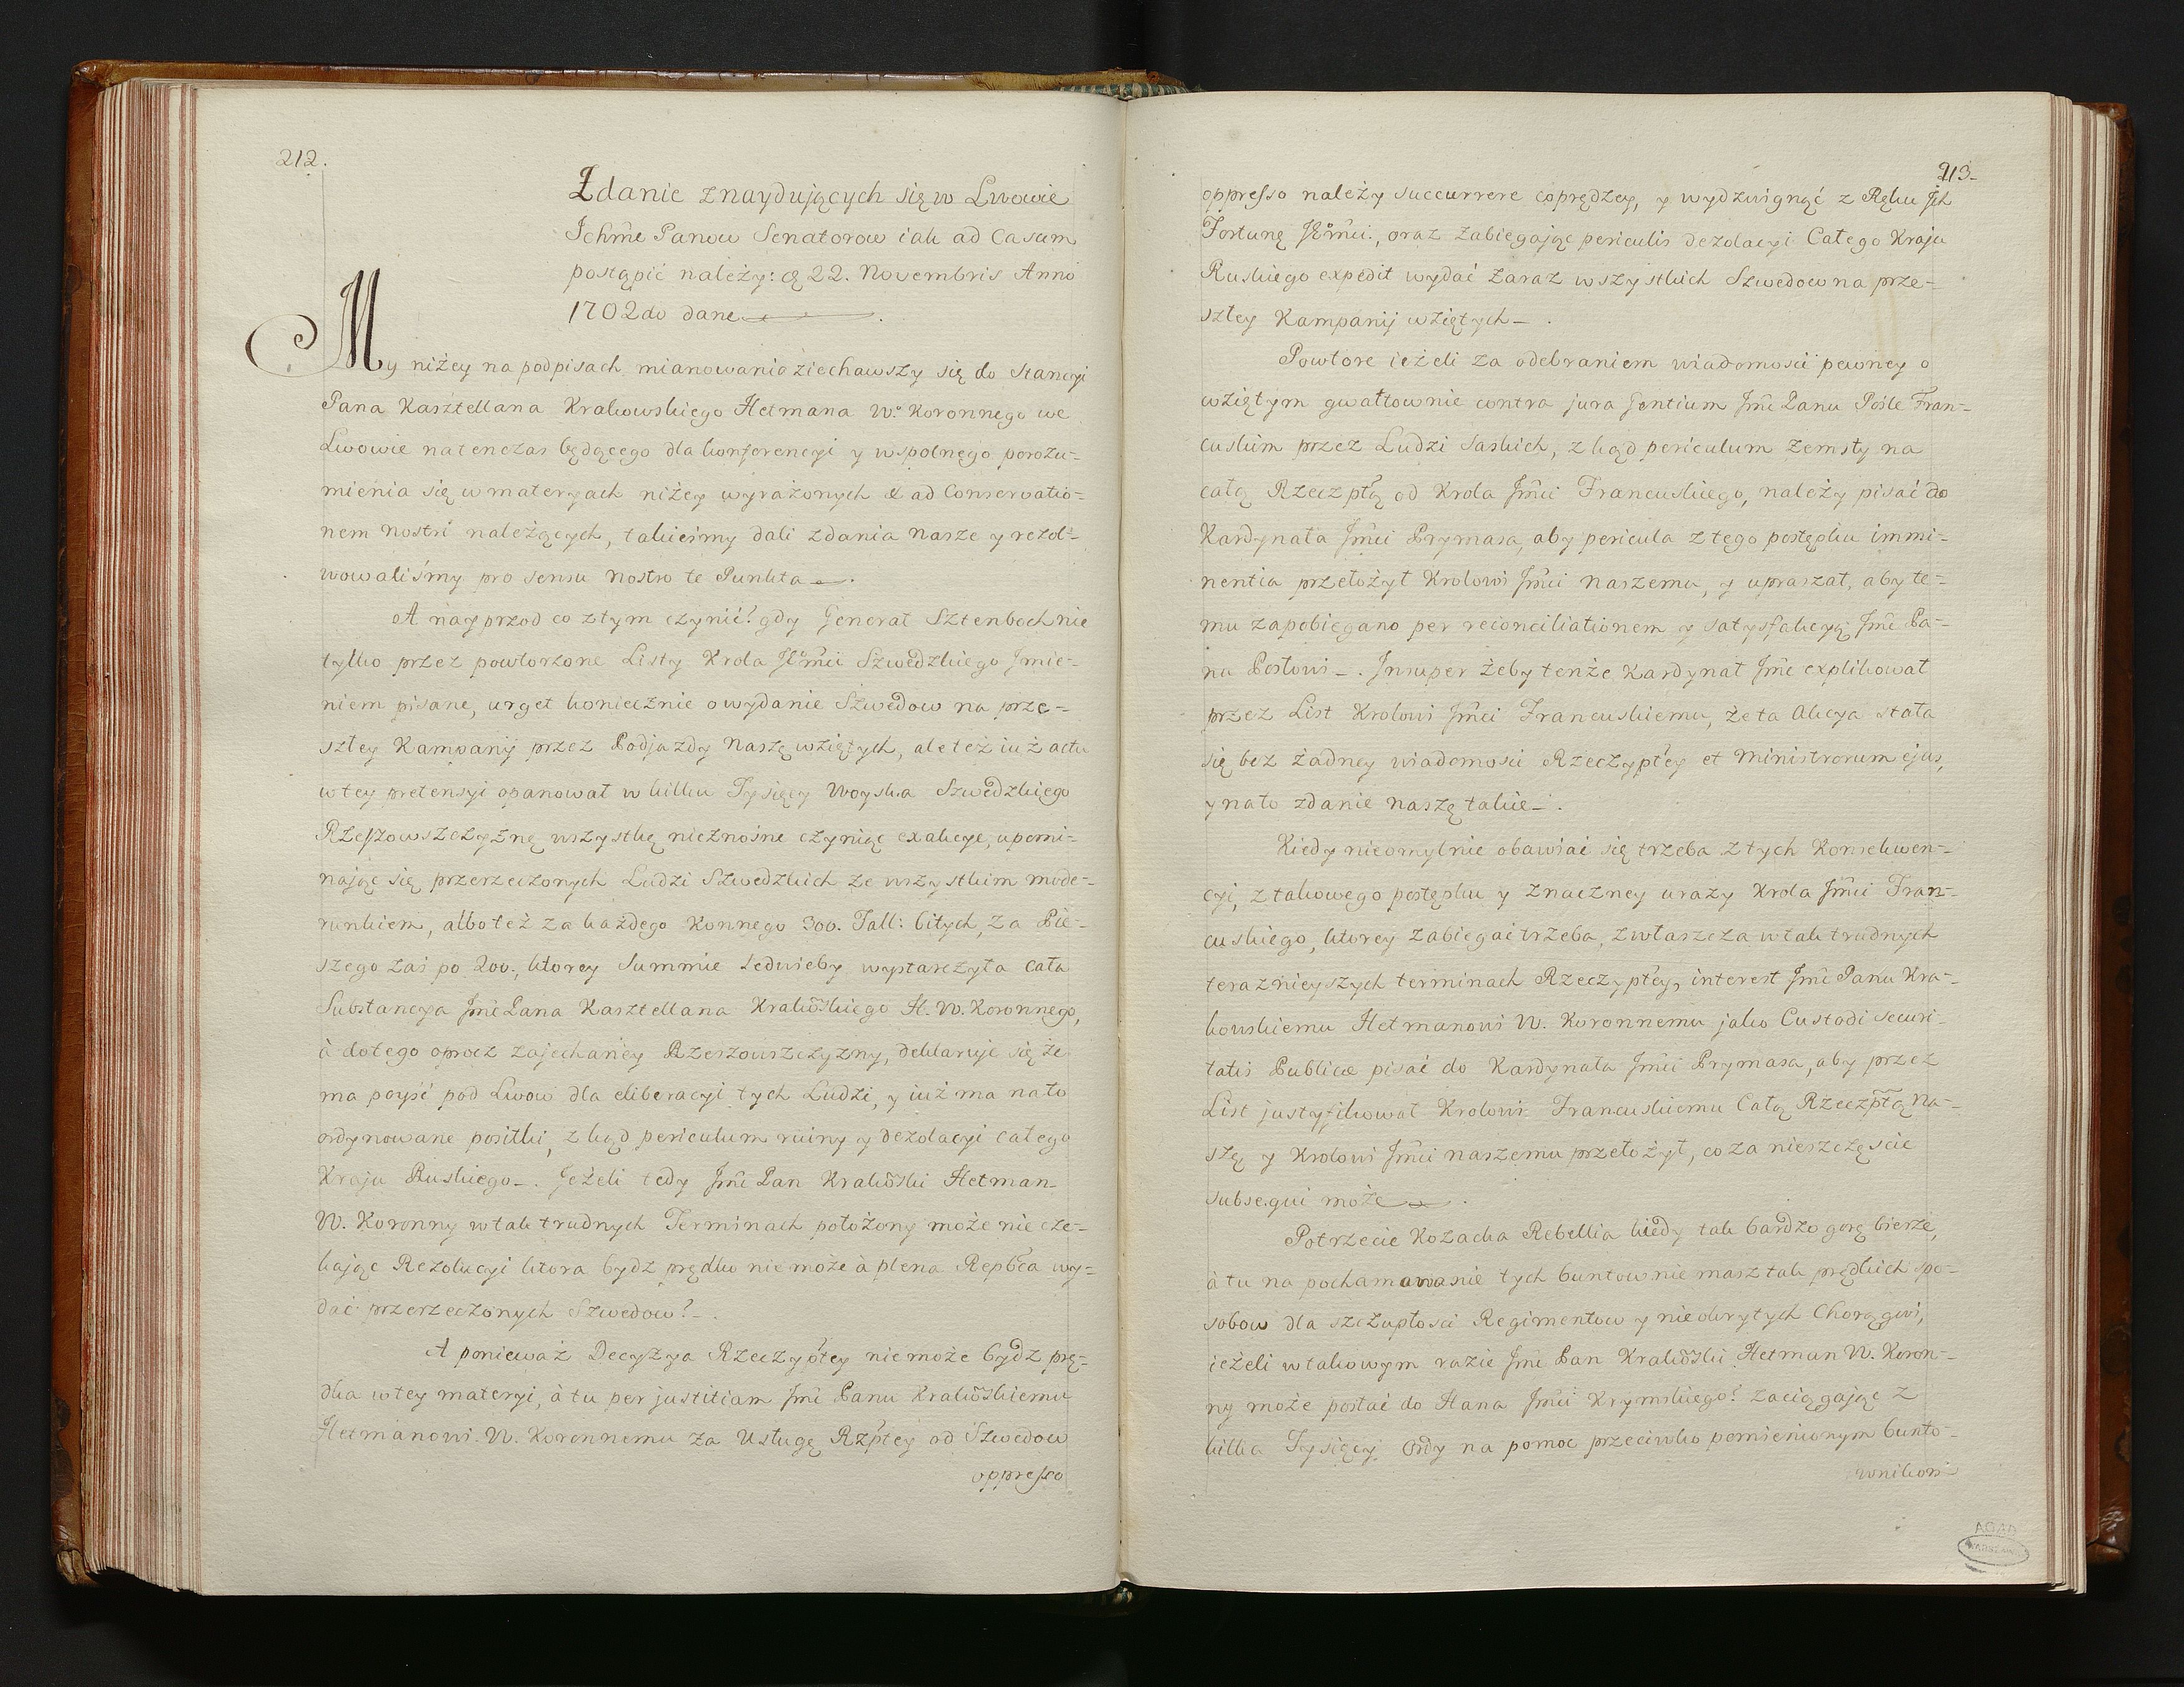 212.
Zdanie znaydujących się w Lwowie
Ichm̃c Panow Senatorow iak ad Casum
postąpić należy: 22. Novembris Anno
1702do dane
My niżey na podpisach mianowani ziechawszy się do Stancyi
Pana Kasztellana Krakowskiego Hetmana Wo Koronnego we
Lwowie natenczas będącego dla konferencyi y wspolnego porozu-
mienia się w materyach niżey wyrażonych & ad Conservatio-
nem nostri należących, takiesmy dali zdania nasze y rezol-
wowaliśmy pro sensu nostro te Punkta.
A nayprzod co z tym czynić? gdy Generał Sztenboch nie
tylko przez powtorzone Listy Krola JKm̃ci Szwedzkiego Jmie-
niem pisane, urget koniecznie o wydanie Szwedow na prze-
szłey Kampanij przez Podjazdy naszę wziętych, ale też iuż actu
w tey pretensyi opanował w kilku Tysięcy Woyska Szwedzkiego
Rzeszowszczyznę wszystkę nieznośne czyniąc exakcye, upomi-
nając się przerzeczonych Ludzi Szwedzkich ze wszystkim mode-
runkiem, albo też za każdego Konnego 300. Tall: bitych, za Pie-
szego zaś po 200., ktorey Summie ledwieby wystarczyła cała
Substancya Jm̃c Pana Kasztellana Krakõskiego H. W. Koronnego,
à do tego oprocz zajechaney Rzeszowszczyzny, deklaruje się że
ma poyść pod Lwow dla eliberacyi tych Ludzi, y iuż ma na to
ordynowane posiłki, zkąd periculum ruiny y dezolacyi całego
Kraju Ruskiego-. Jeżeli tedy Jm̃c Pan Krakõski Hetman
W. Koronny w tak trudnych Terminach położony może nie cze-
kając Rezolucyi ktora bydz prędko nie może à plena Repb̃ca wy-
dać przerzeczonych Szwedow?-.
A ponieważ Decyzya Rzeczyptey nie może bydz prę-
dka w tey materyi, à tu per justitiam Jm̃c Panu Krakõskiemu
Hetmanowi W. Koronnemu za Usługę Rzptey od Szwedow
oppresso
213-
oppresso należy succurrere coprędzey, y wydzwignąć z Ręku Jch
Fortunę JKm̃ci., oraz zabiegając periculis dezolacyi Całego Kraju
Ruskiego expedit wydać zaraz wszystkich Szwedow na prze-
szłey Kampanij wziętych-.
Powtore ieżeli za odebraniem wiadomości pewney o
wziętym gwałtownie contra jura Gentium Jm̃c Panu Pośle Fran-
cuskim przez Ludzi Saskich, zkąd periculum zemsty na
całą Rzeczptą od Krola Jm̃ci Francuskiego, należy pisać do
Kardynała Jm̃ci Prymasa, aby pericula z tego postępku immi-
nentia przełożył Krolowi Jm̃ci naszemu, y upraszał, aby te-
mu zapobiegano per reconciliationem y satysfakcyą Jm̃c Pa-
nu Posłowi-. Jnsuper żeby tenże Kardynał Jm̃c explikował
przez List Krolowi Jm̃ci Francuskiemu, że ta Akcya stała
się bez żadney wiadomości Rzeczyptey et Ministrorum ejus,
y na to zdanie naszę takie-.
Kiedy nieomylnie obawiać się trzeba z tych Konsekwen-
cyi, z takowego postępku y znaczney urazy Krola Jm̃ci Fran-
cuskiego, ktorey zabiegać trzeba, zwłaszcza w tak trudnych
teraznieyszych terminach Rzeczyptey, interest Jm̃c Panu Kra-
kowskiemu Hetmanowi W. Koronnemu jako Custodi Securi-
tatis Publicæ pisać do Kardynała Jm̃ci Prymasa, aby przez
List justyfikował Krolowi Francuskiemu Całą Rzeczptą Na-
szę y Krolowi Jm̃ci naszemu przełożył, co za nieszczęscie
subsequi może.
Potrzecie Kozacka Rebellia kiedy tak bardzo gorę bierze,
à tu na pochamowanie tych buntow nie masz tak prędkich spo-
sobow dla szczupłości Regimentow y nieokrytych Chorągwi,
ieżeli w takowym razie Jm̃c Pan Krakõski Hetman W. Koron-
ny może posłać do Hana Jm̃ci Krymskiego? zaciągając z
kilka Tysięcy Ordy na pomoc przeciwko pomienionym bunto-
wnikom
AGAD
WARSZAWA